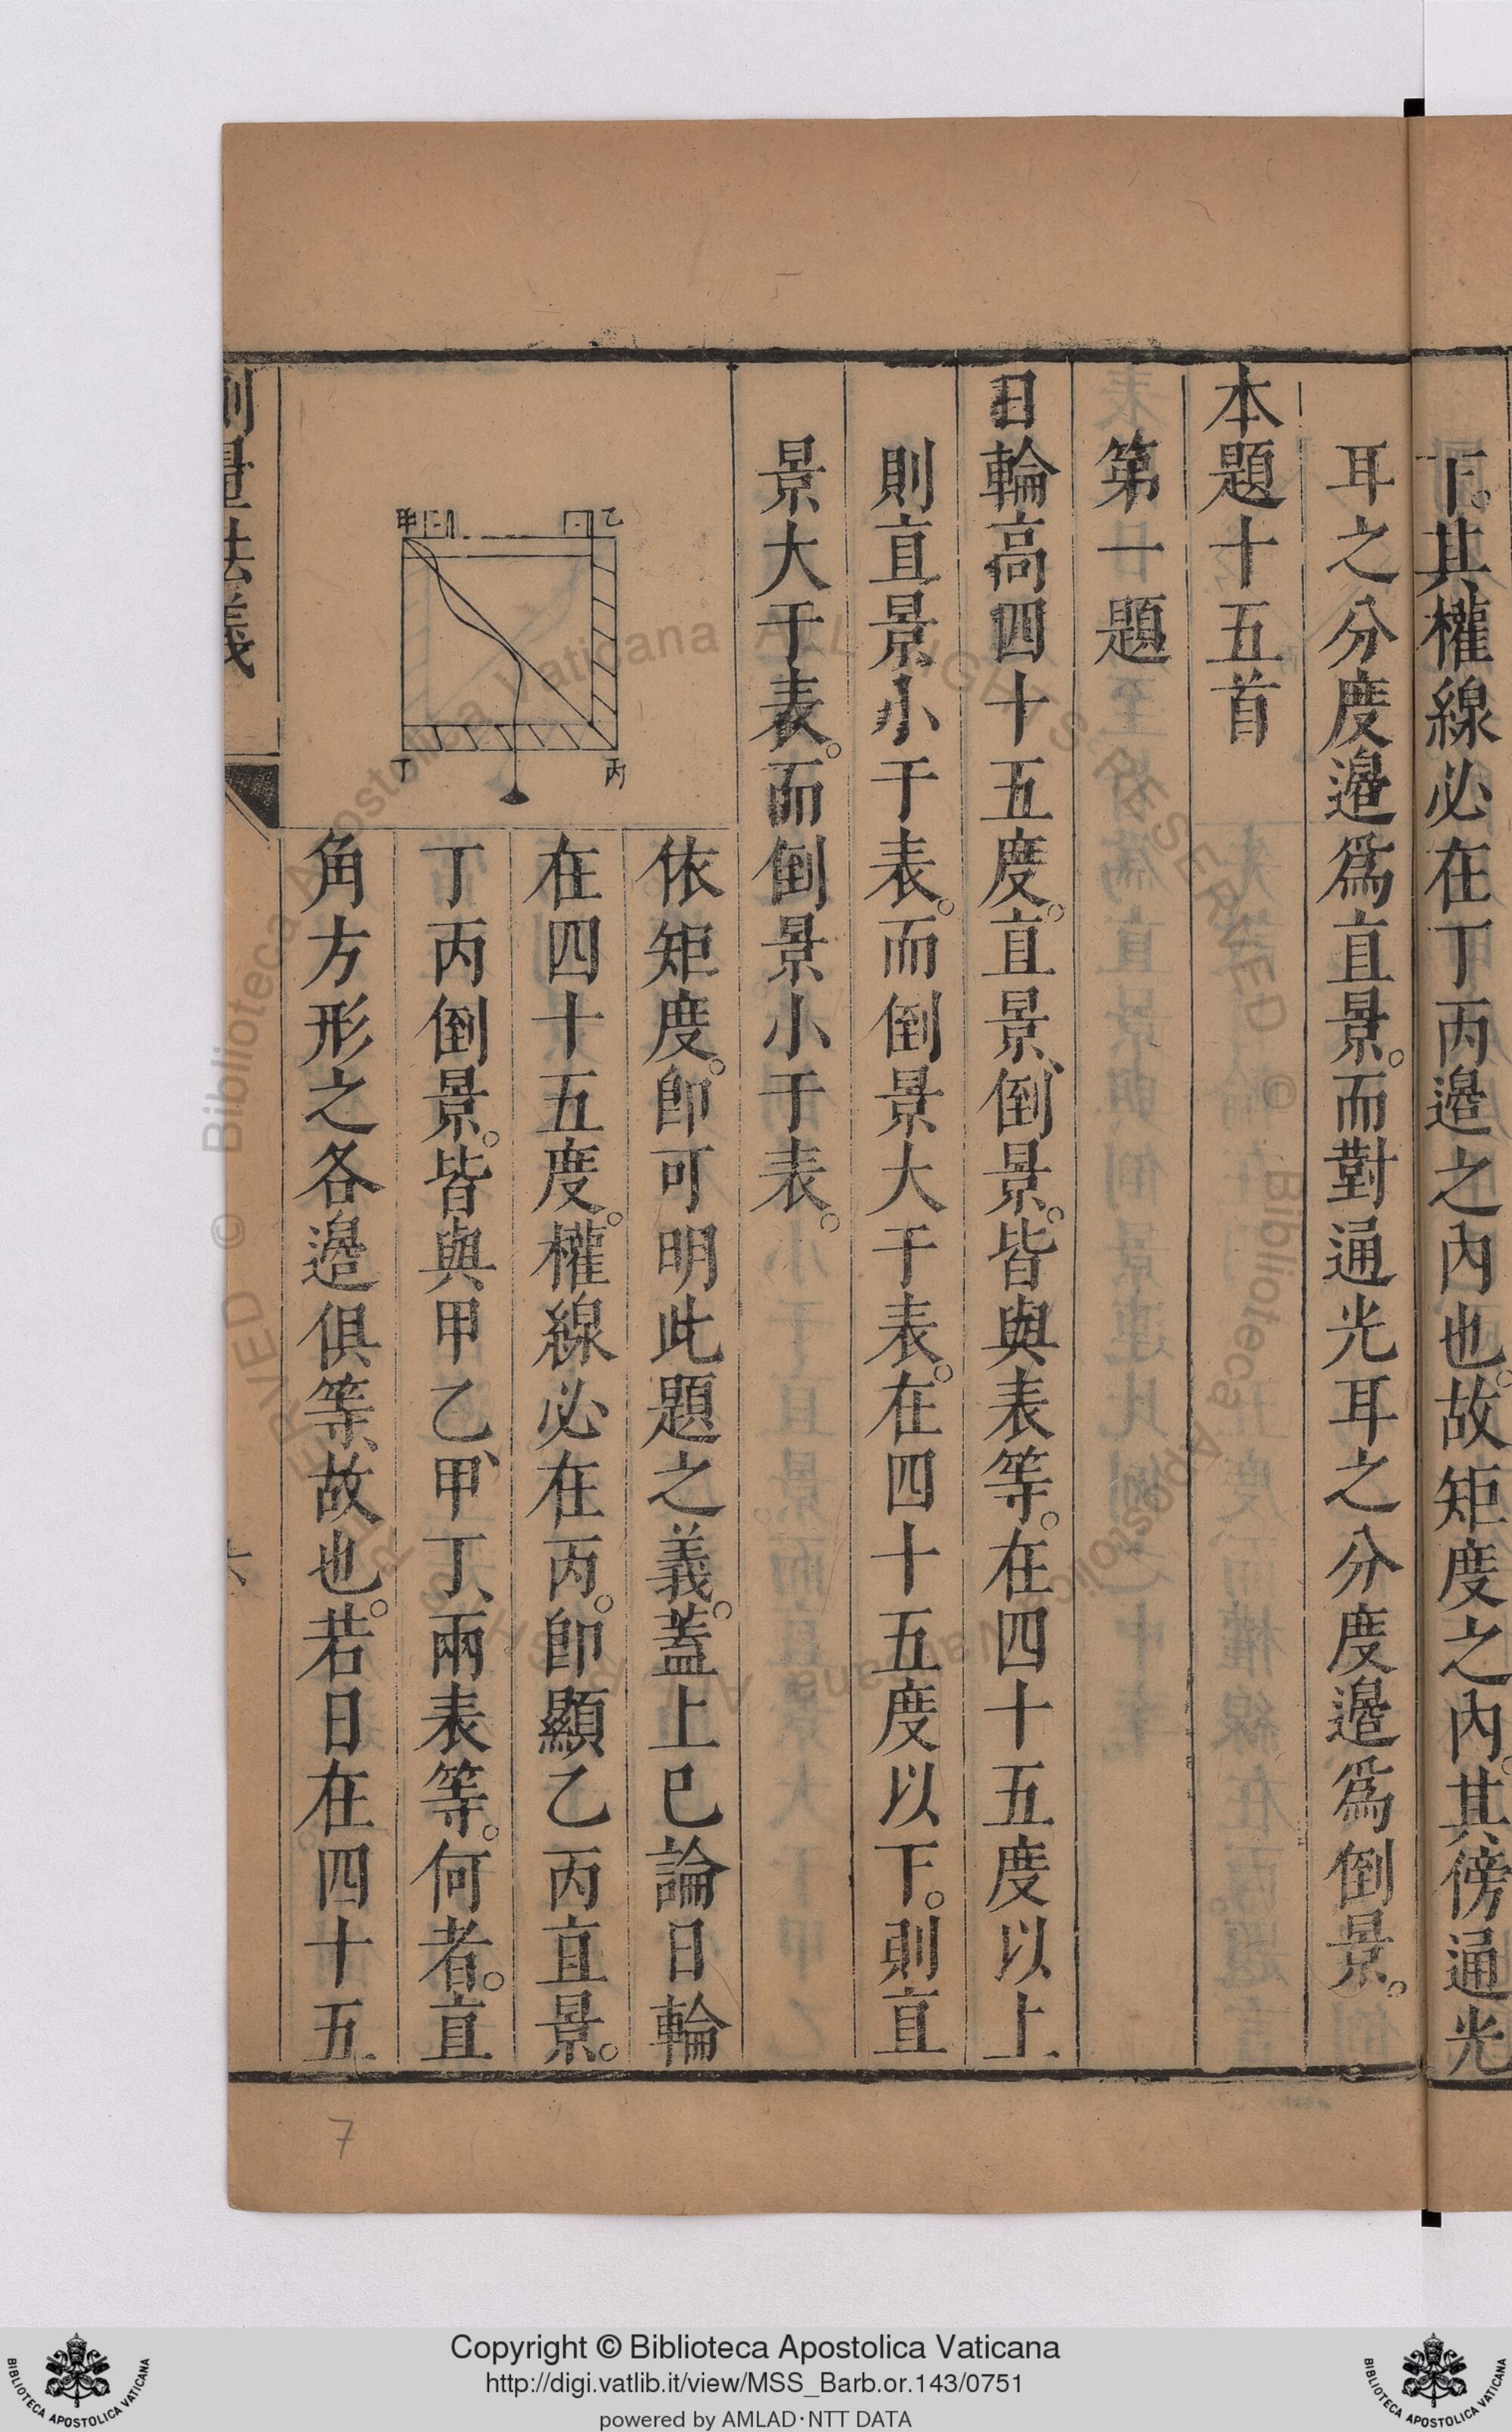 下。其權線必在丁丙邉之內也。故矩度之內。其傍通光
耳之分度邉爲直景。而對通光耳之分度邉爲倒景。
本題十五首
第一題
日輪高四十五度。直景、倒景。皆與表等。在四十五度以上
則直景小于表。而倒景大于表。在四十五度以下。則直
景大于表。而倒景小于表。
甲 乙
丁 丙
依矩度。卽可明此題之義。蓋上已論日輪
在四十五度。權線必在丙。卽顯乙丙直景。
丁丙倒景。皆與甲乙、甲丁、兩表等。何者。直
角方形之各邉俱等、故也。若日在四十五
測量法義
六
7
© Biblioteca Apostolica Vaticana ALL RIGHTS RESERVED
Copyright © Biblioteca Apostolica Vaticana
http://digi.vatlib.it/view/MSS_Barb.or.143/0751
powered by AMLAD·NTT DATA
BIBLIOTECA APOSTOLICA VATICANA
BIBLIOTECA APOSTOLICA VATICANA